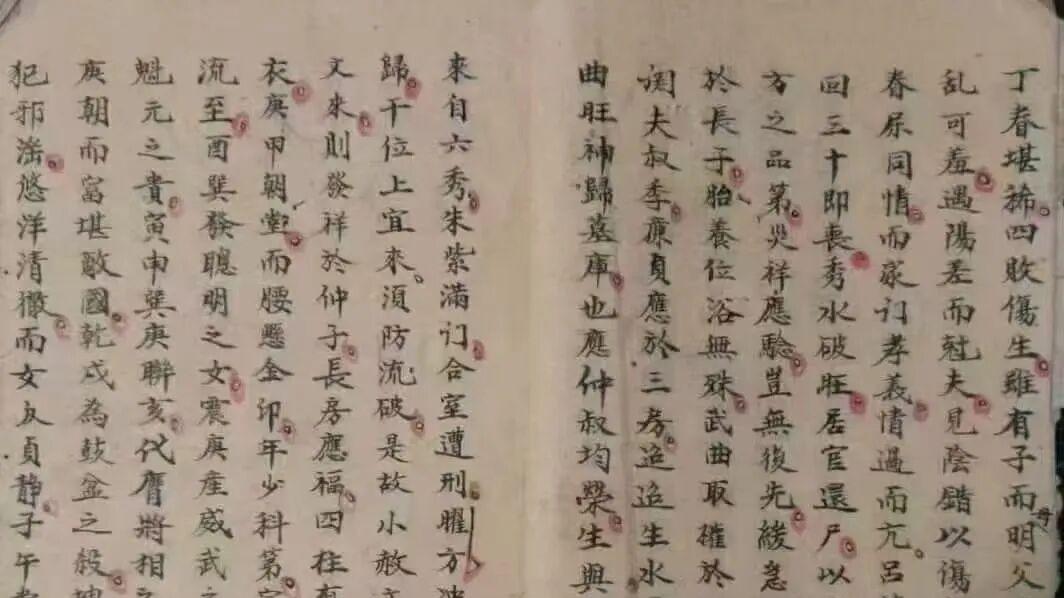 丁春堪稀四敗傷生雖有子而明父
乱可羞遇陽差而尅夫見陰錯以傷母
春尿同情而家订孝義情過而亢呂
回三十即喪秀水破旺居官還尸以
方之品第災祥應驗豈無復先緩急
於長子胎養位浴無殊武曲取確於
诡夫叔季廉貞應於三房迢迢生水
曲旺神歸墓庫也應仲叔均榮生與
來自六秀朱紫滿订合室遭刑曜方
歸干位上宜來須防流破是故小赦
文來則發祥於仲子長房應福四柱有
衣庚甲朝堂而腰懸金印年少科第
流至酉巽發聰明之女震庚產威武之
魁元之貴寅申巽庚聯亥代膺將相之
庚朝而富堪敵國乾戌為鼓盆之殺
犯邪滛悠洋清徹而女反貞静子午